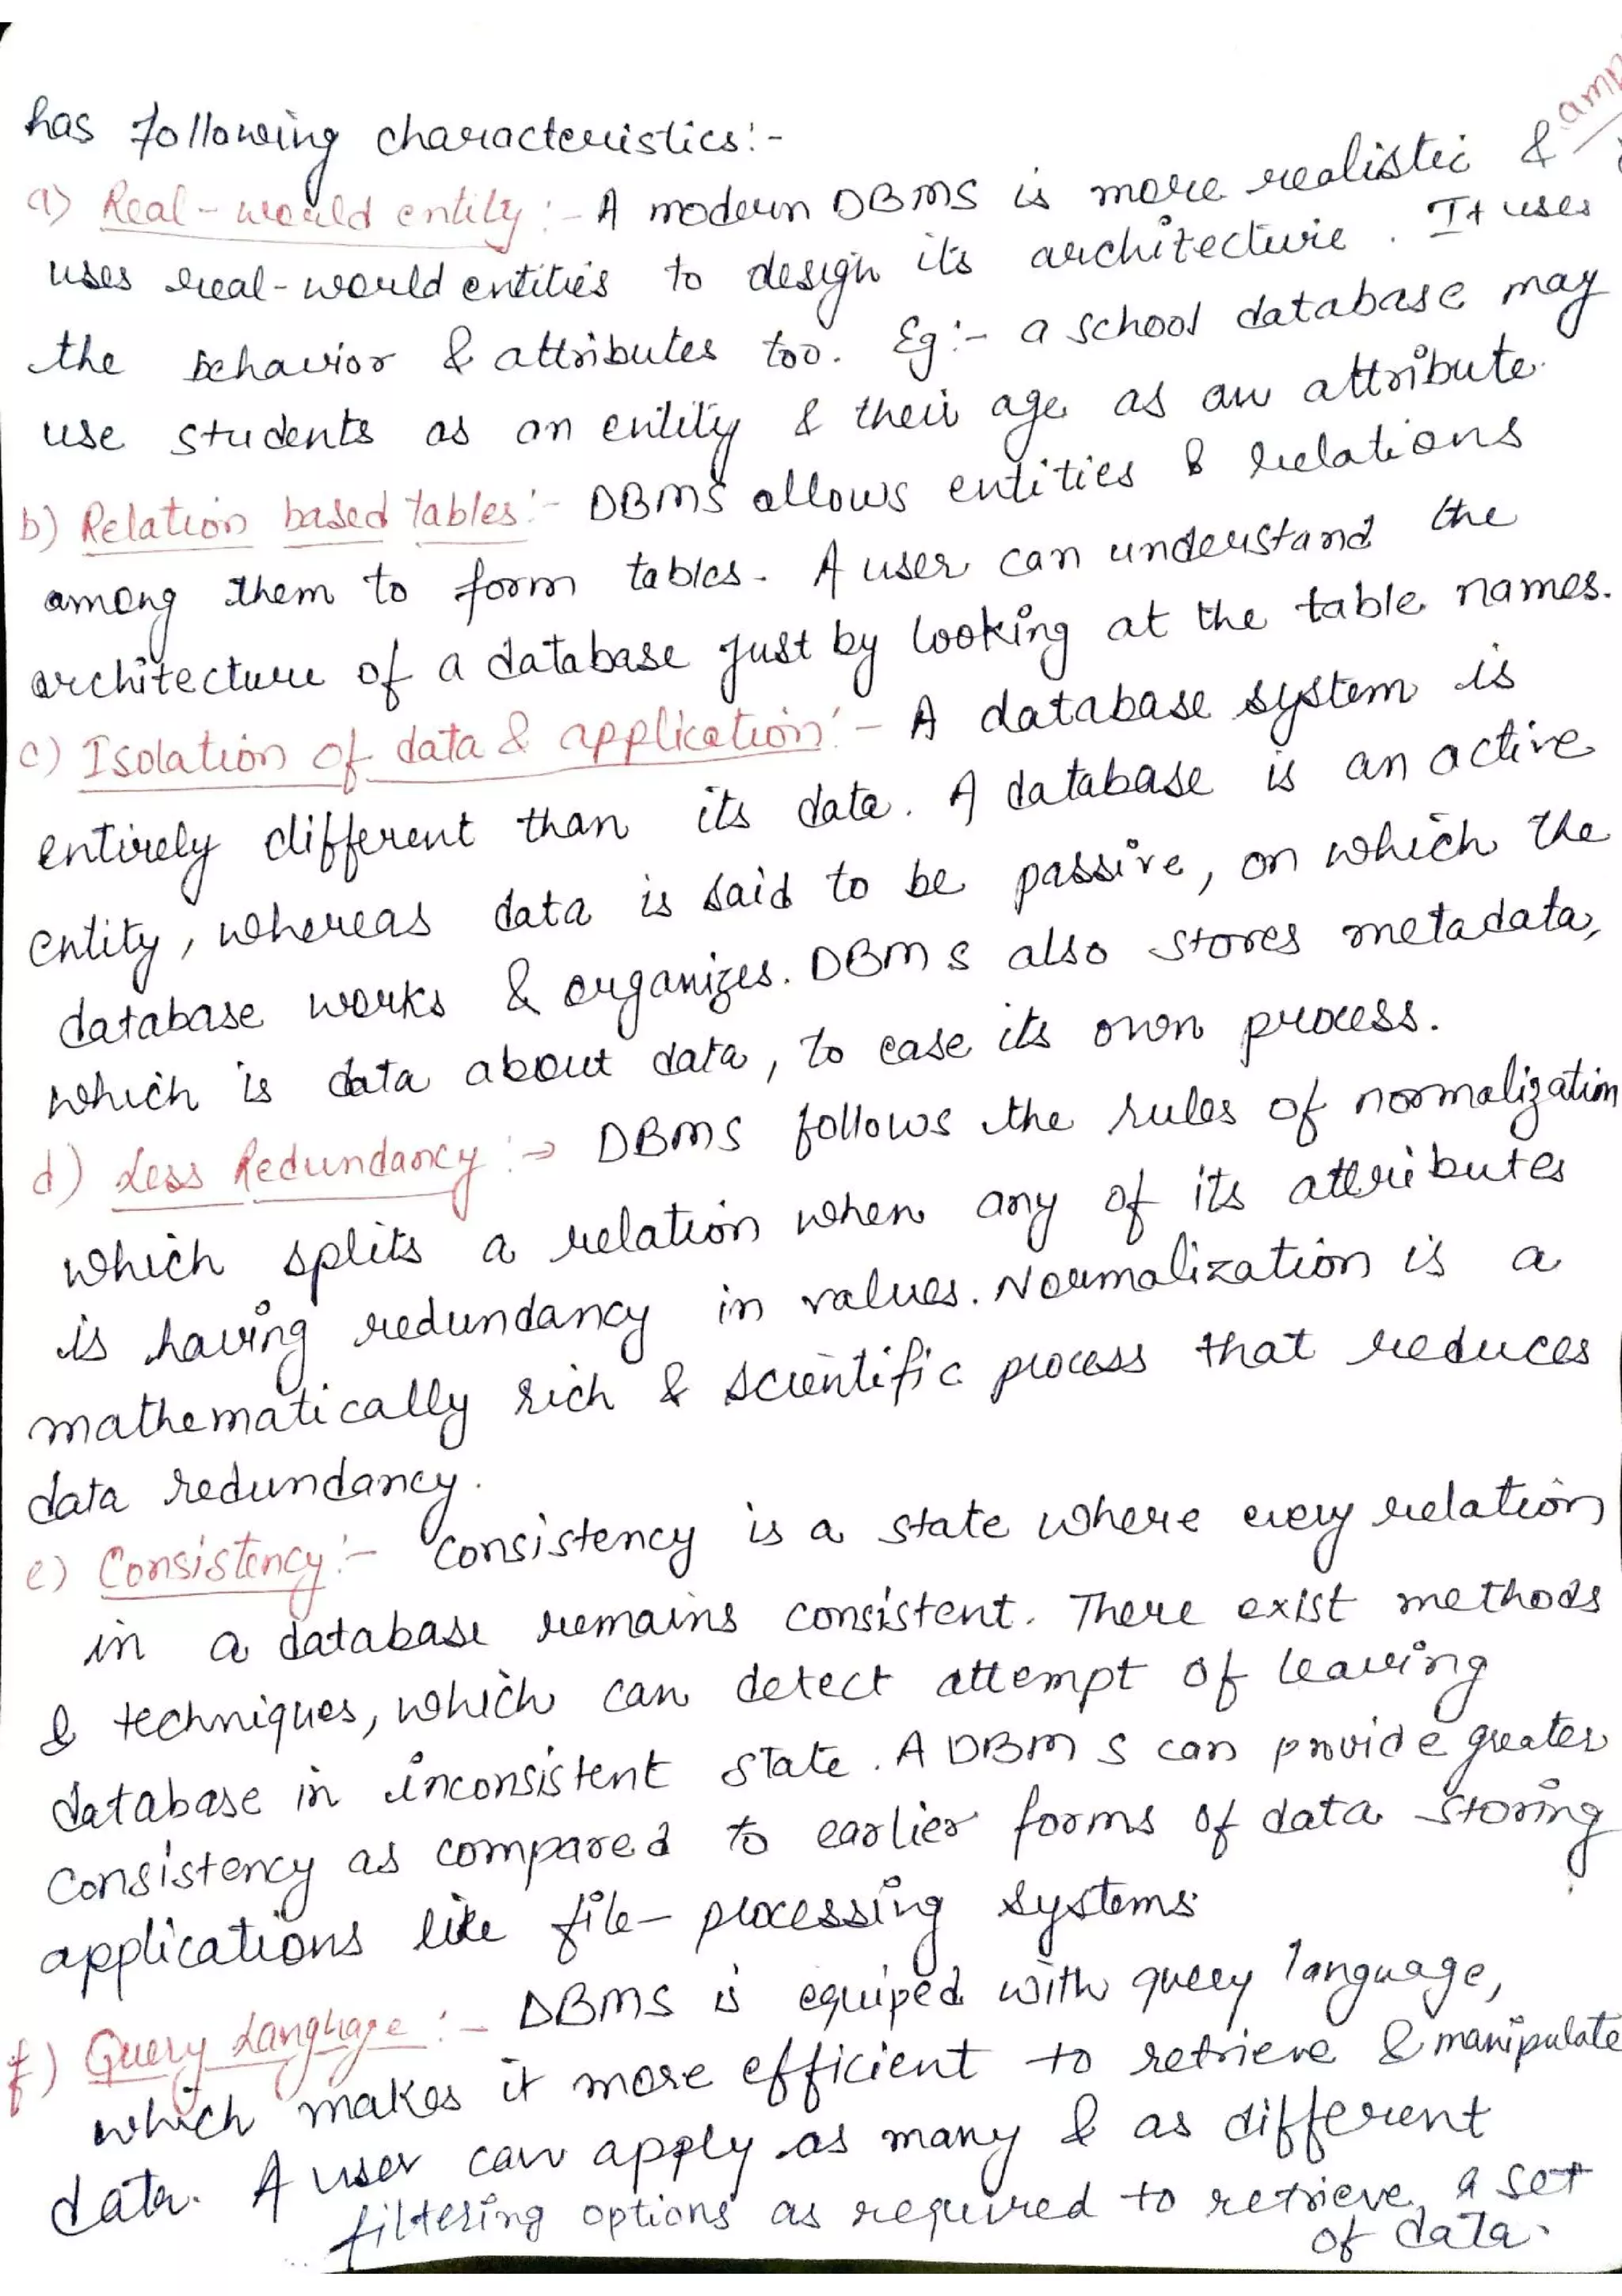 has following characteristics:-
a) Real-world entity:- A modern DBMS is more realistic &
uses real-world entities to design its architecture. It uses
the behavior & attributes too. Eg:- a school database may
use students as an entity & their age as an attribute.
b) Relation based tables:- DBMS allows entities & relations
among them to form tables. A user can understand the
architecture of a database just by looking at the table names.
c) Isolation of data & application:- A database system is
entirely different than its data. A database is an active
entity, whereas data is said to be passive, on which the
database works & organizes. DBMS also stores metadata,
which is data about data, to ease its own process.
d) Less Redundancy:→ DBMS follows the rules of normalization
which splits a relation when any of its attributes
is having redundancy in values. Normalization is a
mathematically rich & scientific process that reduces
data redundancy.
e) Consistency:- Consistency is a state where every relation
in a database remains consistent. There exist methods
& techniques, which can detect attempt of leaving
database in inconsistent state. A DBMS can provide greater
consistency as compared to earlier forms of data storing
applications like file-processing systems.
f) Query Language:- DBMS is equiped with query language,
which makes it more efficient to retrieve & manipulate
data. A user can apply as many & as different
filtering options as required to retrieve a set
of data.